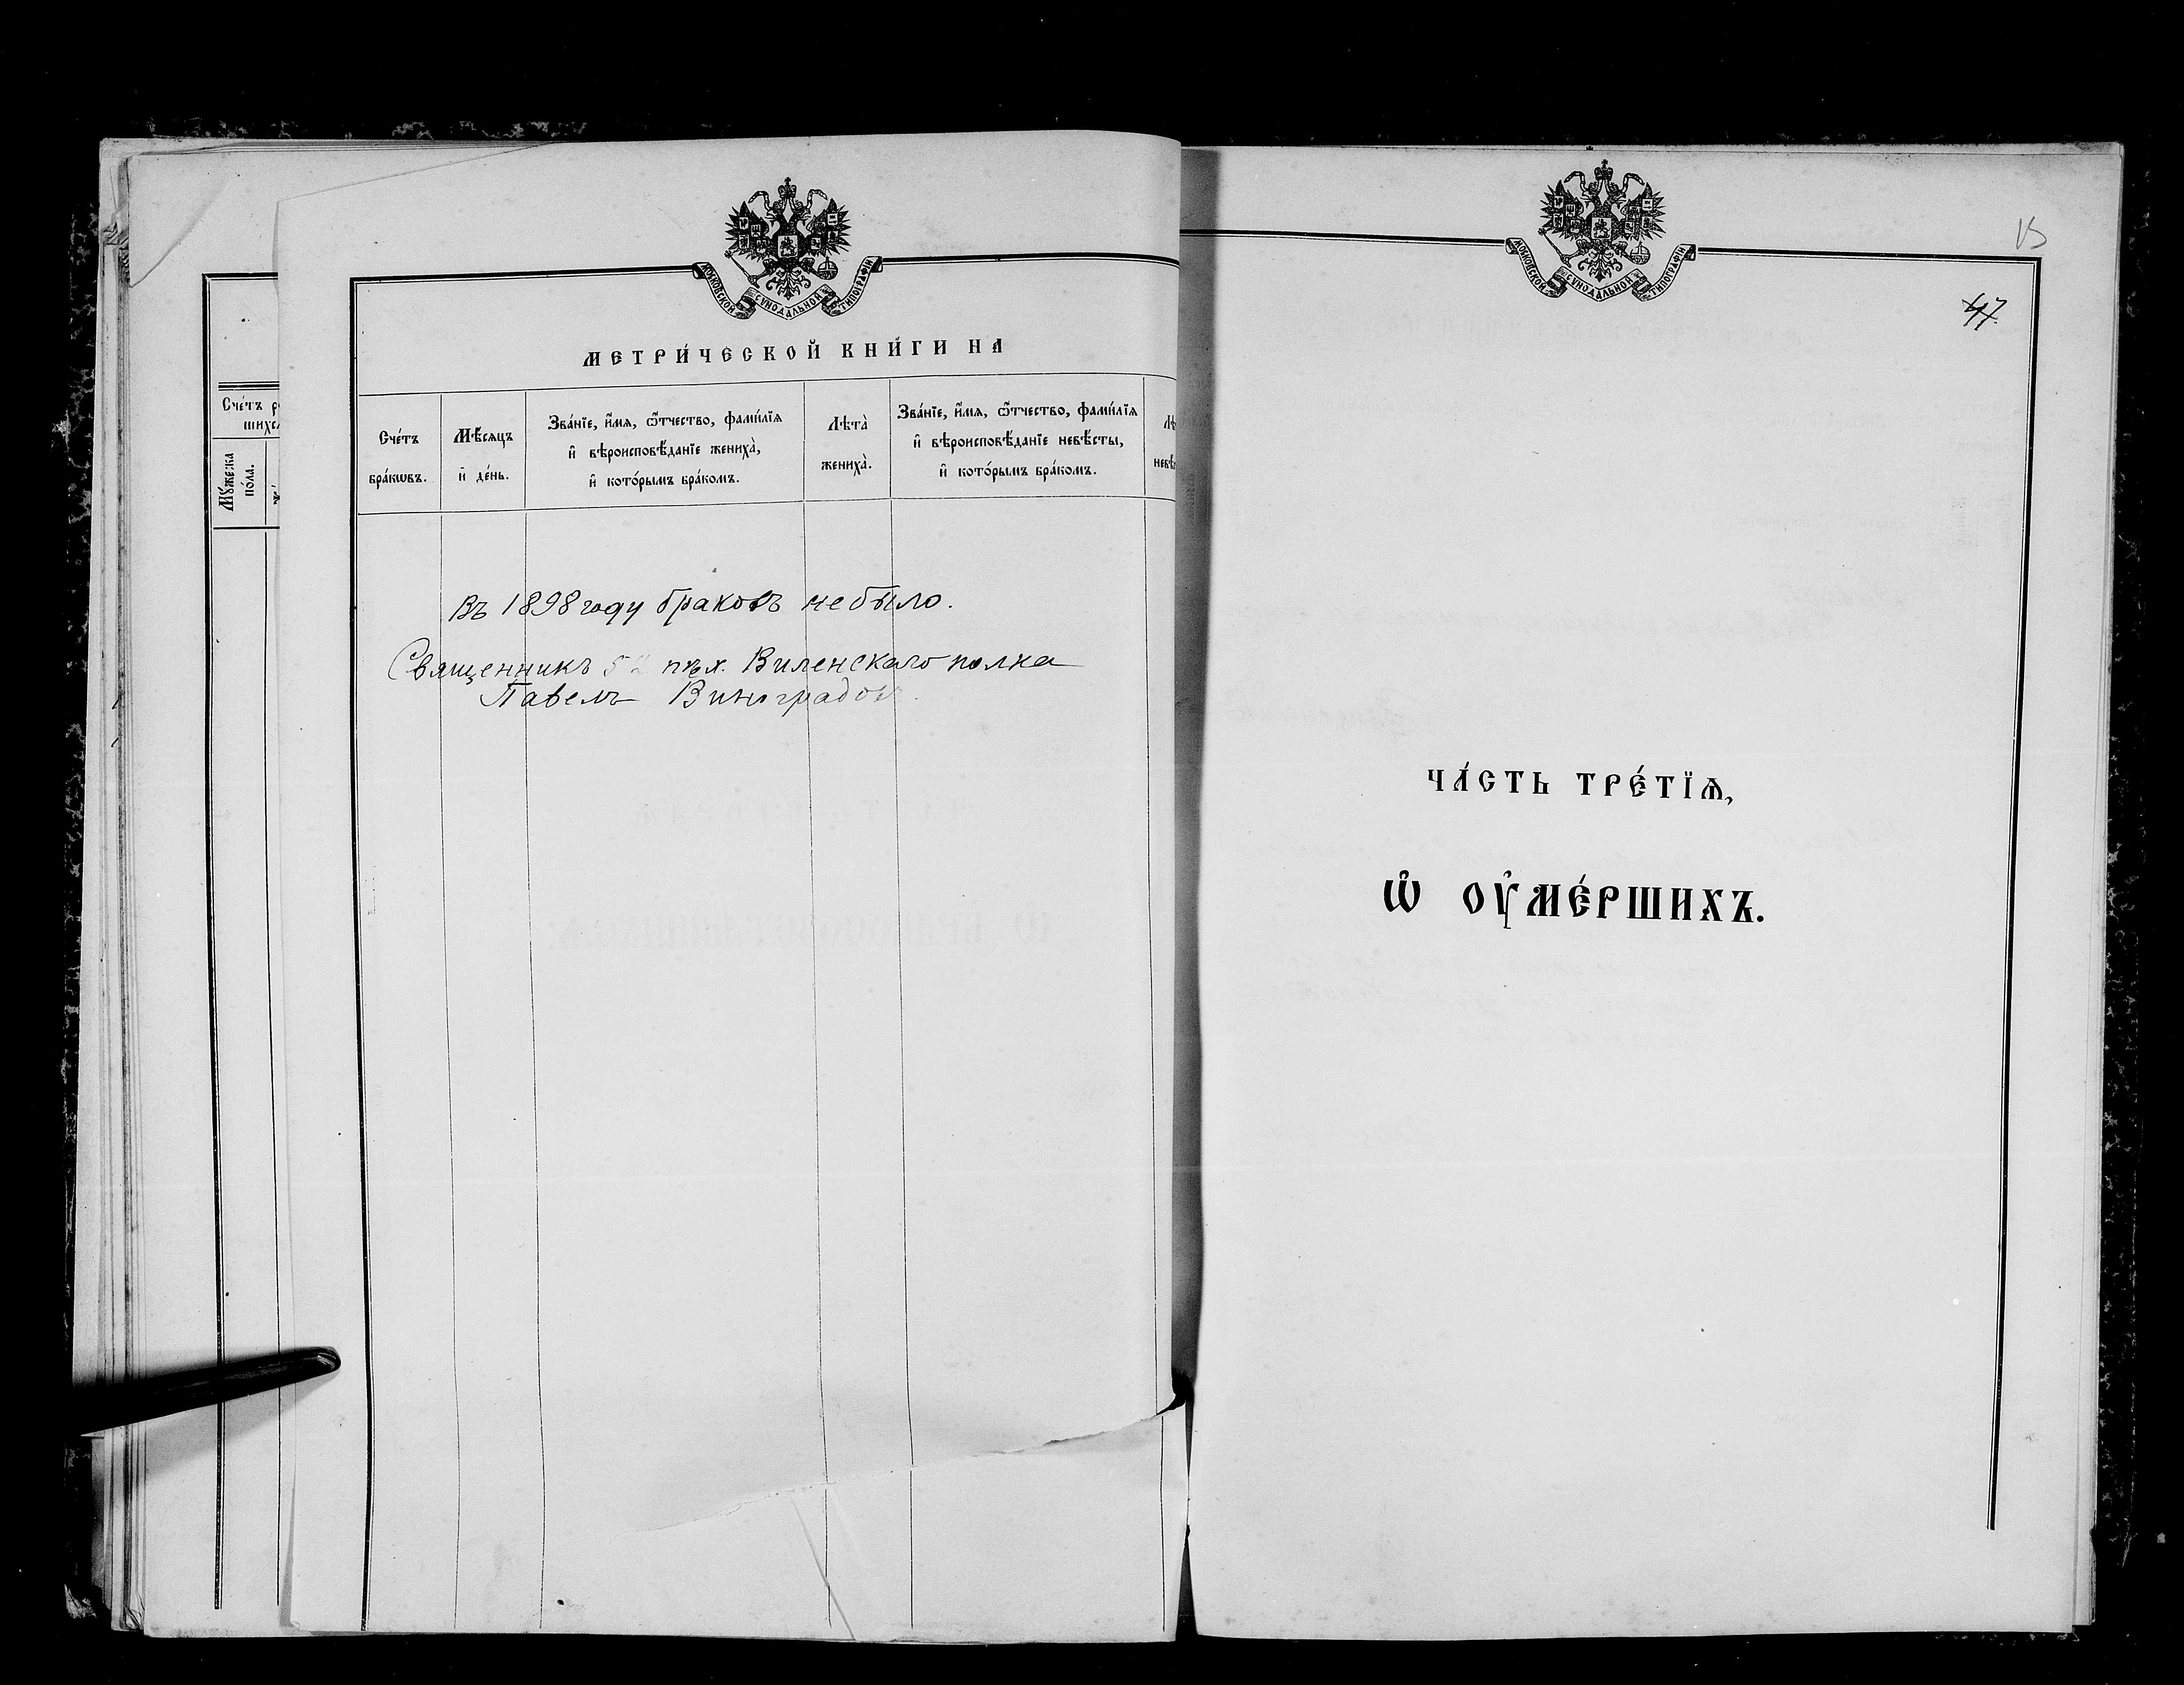 МОСКОВСКОЙ СѴНОДАЛЬНОЙ ТИПОГРАФІИ
МЕТРИ́ЧЕСКОЙ КНИ́ГИ НА
Сче́тъ
шихс
Мꙋ́жеска
по́ла.
Сче́тъ
бра́кѡвъ.
Мѣ́сяцъ
и҆ де́нь.
Зва́нїе, и҆́мѧ, ѻ҆́тчество, фами́лїѧ
и҆ вѣроисповѣ́данїе жениха̀,
и҆ кото́рымъ бра́комъ.
Лѣта̀
жениха̀.
Зва́нїе, и҆́мѧ, ѻ҆́тчество, фами́лїѧ
и҆ вѣроисповѣ́данїе невѣ́сты,
и҆ кото́рымъ бра́комъ.
Въ 1898 году браковъ не было.
Священникъ 52 пѣх. Виленскаго полка
Павелъ Виноградовъ.
МОСКОВСКОЙ СѴНОДАЛЬНОЙ ТИПОГРАФІИ
15
47.
ЧА́СТЬ ТРЕ́ТЇѦ,
Ѡ҆ ОУ҆МЕ́РШИХЪ.